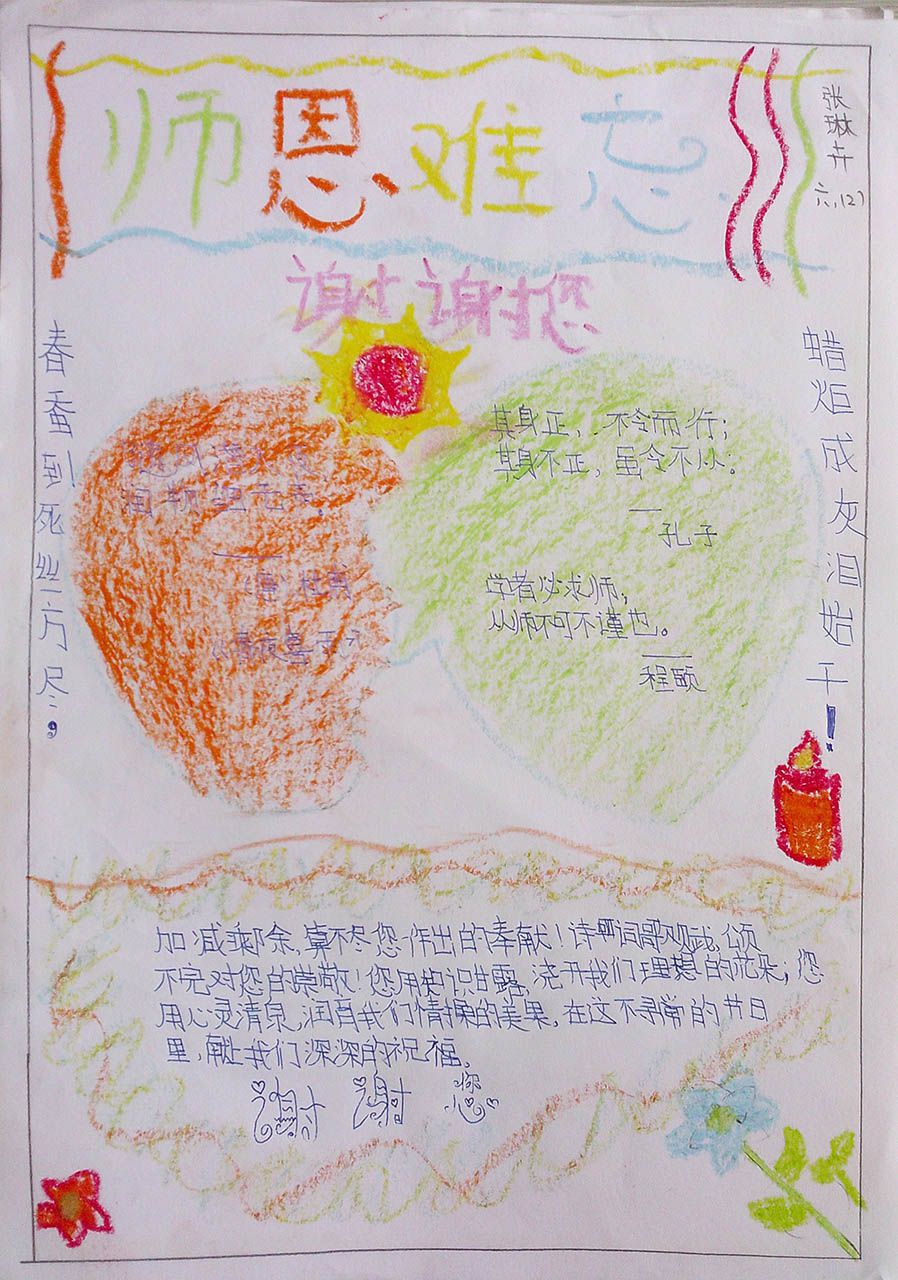 师恩难忘
张琳卉
六.(2)
谢谢您
春蚕到死丝方尽，
蜡炬成灰泪始干！
随风潜入夜
润物细无声。
——
(唐)杜甫
《春夜喜雨》
其身正，不令而行；
其身不正，虽令不从。
——
孔子
学者必求师，
从师不可不谨也。
——
程颐
加减乘除，算不尽您作出的奉献！诗词歌赋，颂
不完对您的崇敬！您用知识甘露，浇开我们理想的花朵；您
用心灵清泉，润育我们情操的美果，在这不寻常的节日
里，献上我们深深的祝福。
谢谢您